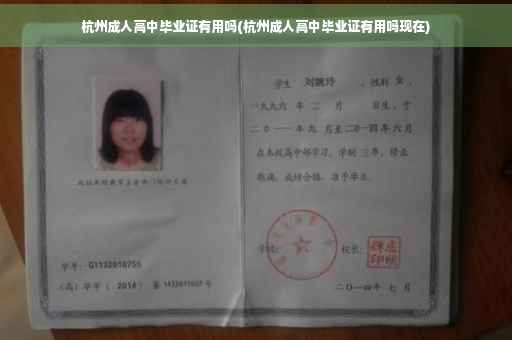 杭州成人高中毕业证有用吗(杭州成人高中毕业证有用吗现在)
学生 刘婉玲 ，性别 女 ，
一九九六 年 二 月 日生，于
二〇一一 年 九 月至二〇一四年 六 月
在本校高中部学习，学制 三年，修业
期满，成绩合格，准予毕业。
学校：
校长：
学号：G1132010755
(高) 毕字 ( 2014 ) 第 1432011027 号
二〇一四年 七 月